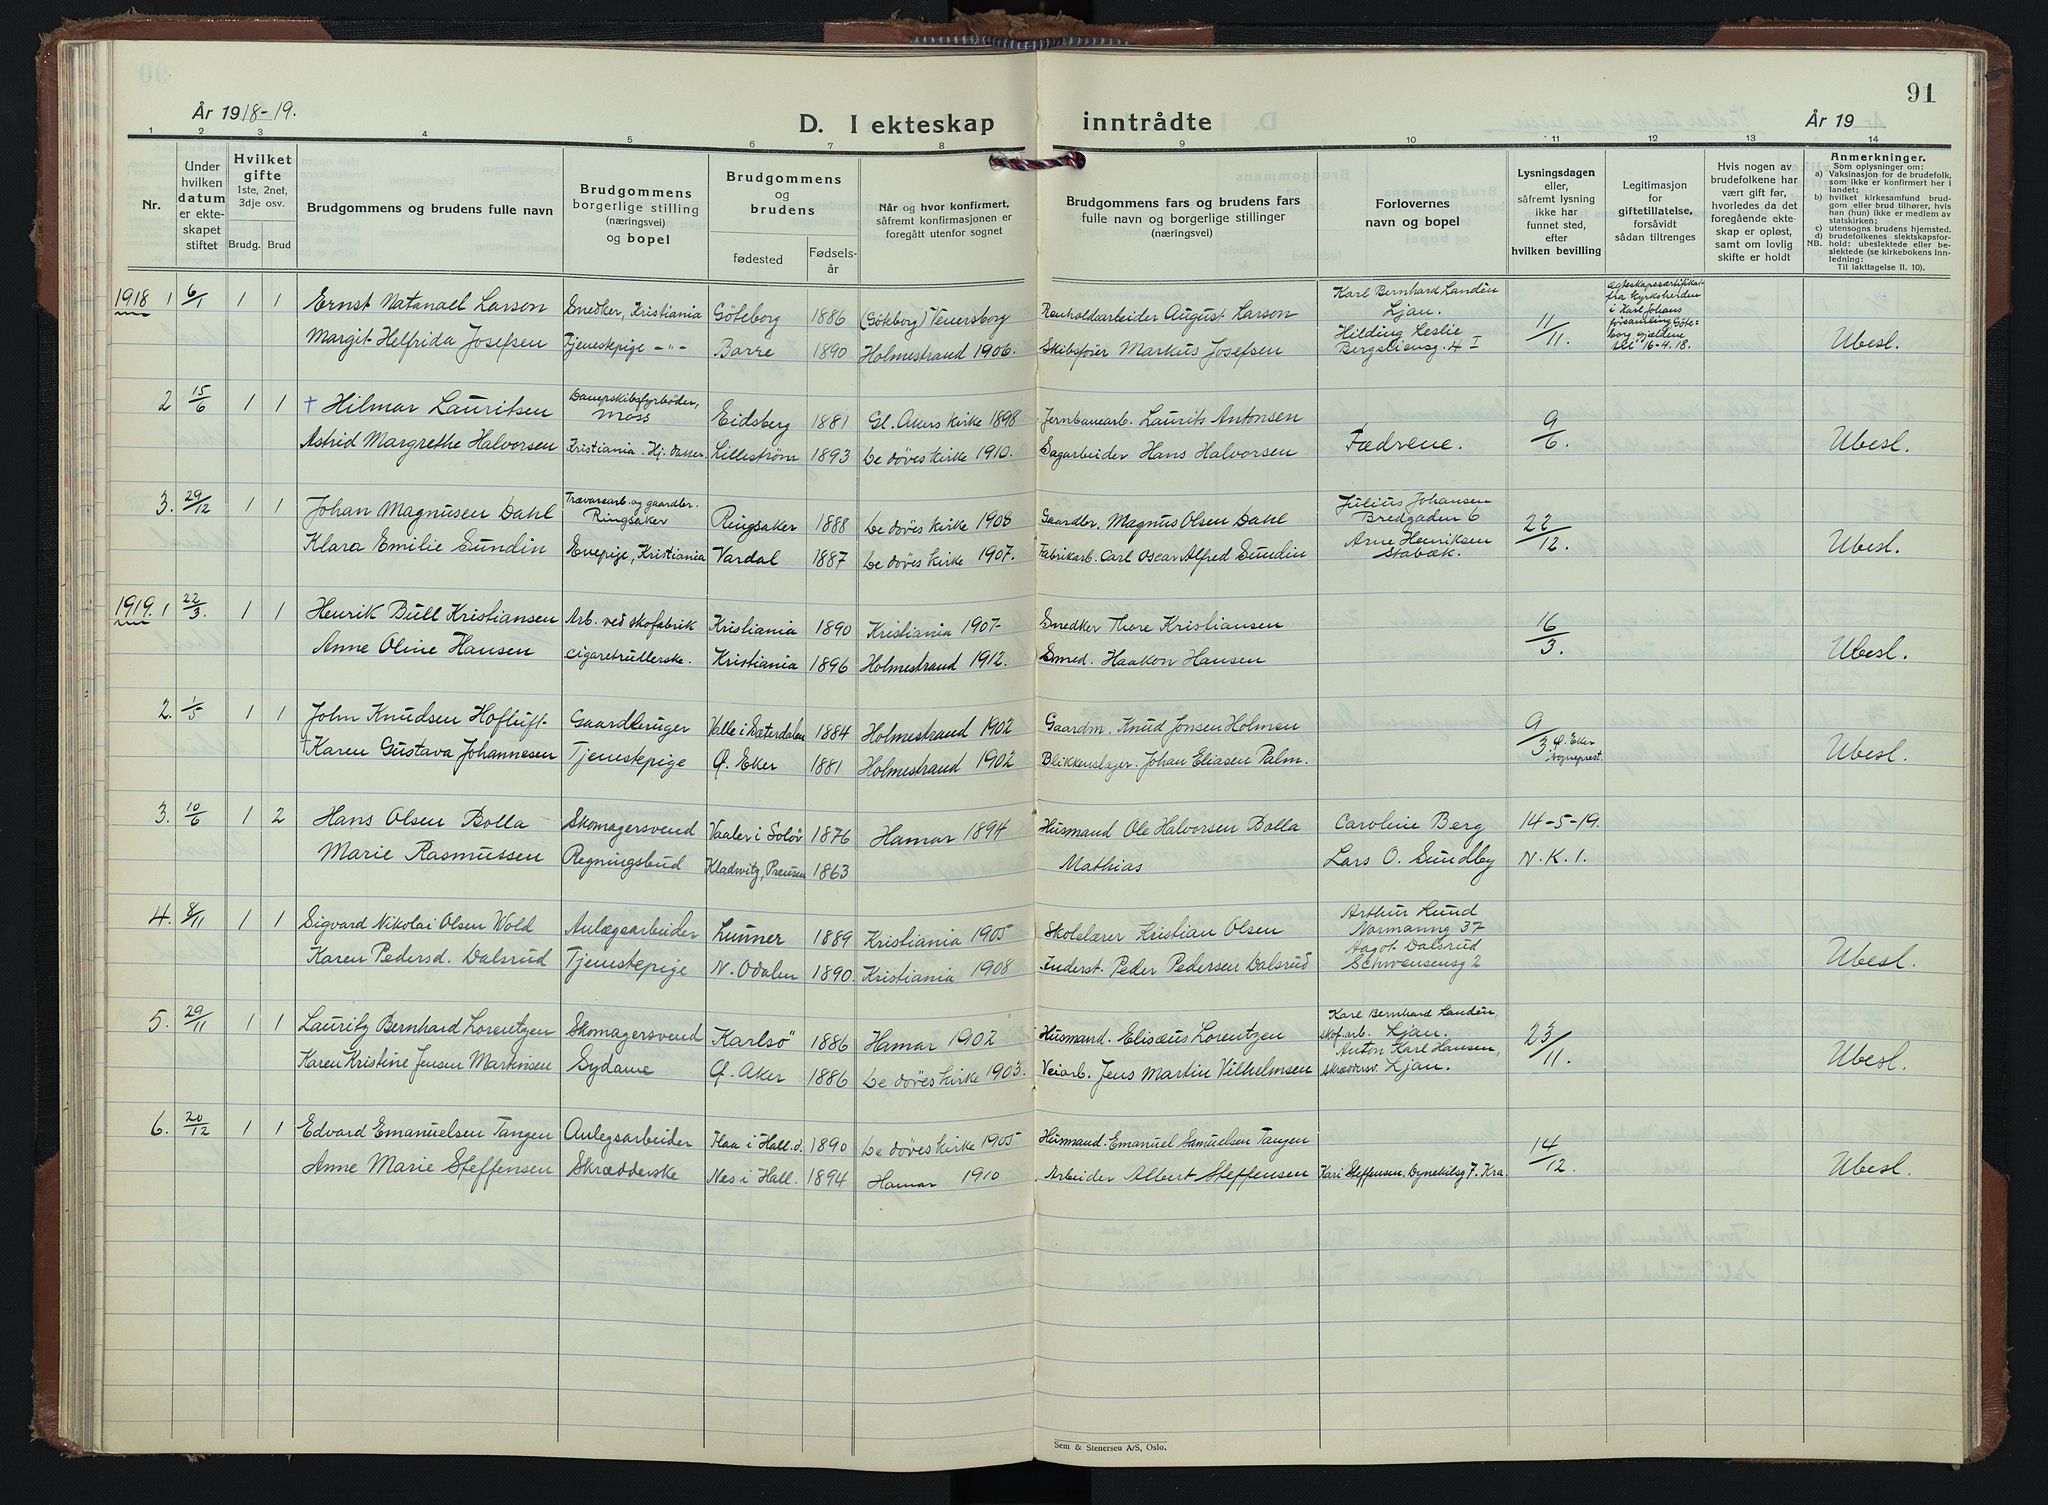 91
År 1918-19.
D. I ekteskap inntrådte
År 19
1 2 3 4 5 6 7 8 9 10 11 12 13 14
Nr.
Under hvilken datum er ekteskapet stiftet
Hvilket gifte
1ste, 2net, 3dje osv.
Brudg. Brud
Brudgommens og brudens fulle navn
Brudgommens borgerlige stilling (næringsvei) og bopel
Brudgommens og brudens
fødested
Fødselsår
Når og hvor konfirmert, såfremt konfirmasjonen er foregått utenfor sognet
Brudgommens fars og brudens fars fulle navn og borgerlige stillinger (næringsvei)
Forlovernes navn og bopel
Lysningsdagen eller, såfremt lysning ikke har funnet sted, efter hvilken bevilling
Legitimasjon for giftetillatelse, forsåvidt sådan tiltrenges
Hvis nogen av brudefolkene har vært gift før, hvorledes da det foregående ekteskap er opløst, samt om lovlig skifte er holdt
Anmerkninger.
Som oplysninger om:
a) Vaksinasjon for de brudefolk, som ikke er konfirmert her i landet;
b) hvilket kirkesamfund brudgom eller brud tilhører, hvis han (hun) ikke er medlem av statskirken;
c) utensogns brudens hjemsted.
d) brudefolkenes slektskapsforhold: ubeslektede eller beslektede (se kirkebokens innledning:
NB.
Til iakttagelse II. 10).
1918 1 6/1 1 1 Ernst Natanael Larson Snedker, Kristiania Göteborg 1886 (Göteborg) Venersborg Renholdsarbeider August Larson Karl Bernhard Landén Ljan.
Margit Helfrida Josefsen Tjenestepige -"- Borre 1890 Holmestrand 1906. Skibsfører Markus Josefsen Hilding Leslie Bergsliensg. 4 I 11/11. i Karl Johans församling Göteborg gjeldene til 16-4.18. Ubesl.
2 15/6 1 1 + Hilmar Lauritsen Dampskibsfyrbøder, Moss Eidsberg 1881 Gl. Akers kirke 1898 Jernbanearb. Laurits Antonsen
Astrid Margrethe Halvorsen Kristiania. Lilleström 1893 De döves kirke 1910. Sagarbeider Hans Halvorsen Fædrene. 9/6. Ubesl.
3. 29/12 1 1 Johan Magnusen Dahl Trævarearb. og gaardbr. Ringsaker Ringsaker 1888 De döves kirke 1908 Gaardbr. Magnus Olsen Dahl Julius Johansen Bredgaden 6
Klara Emilie Sundin Enepige, Kristiania Vardal 1887 De döves kirke 1907. Fabrikarb. Carl Oscar Alfred Sundin Arne Henriksen Stabæk. 22/12. Ubesl.
1919. 1 22/3. 1 1 Henrik Bull Kristiansen Arb. ved skofabrik Kristiania 1890 Kristiania 1907- Snedker Thore Kristiansen
Anne Oline Hansen Cigaretrullerske. Kristiania 1896 Holmestrand 1912. Smed. Haakon Hansen 16/3. Ubesl.
2. 1/5 1 1 John Knudsen Hofluft- Gaardbruger Valle i Sæterdalen 1884 Holmestrand 1902 Gaardm. Knud Jonsen Holmen
+ Karen Gustava Johannesen Tjenestepige Ø. Eker 1881 Holmestrand 1902 Blikkenslager. Johan Eliasen Palm. 9/3 Ø. Eker sogneprest. Ubesl.
3. 10/6 1 2 Hans Olsen Bolla Skomagersvend Vaaler i Solör 1876 Hamar 1894 Husmand Ole Halvorsen Bolla Caroline Berg 14-5-19.
Marie Rasmussen Regningsbud Kladwitz, Preusen 1863 Mathias Lars O. Sundby N. K. 1.
4. 8/11 1 1 Sigvard Nikolai Olsen Wold Anlægsarbeider Lunner 1889 Kristiania 1905 Skolelærer Kristian Olsen Arthur Lund Normanng 37
Karen Pedersd. Dalsrud Tjenestepige N. Odalen 1890. Kristiania 1908 Inderst. Peder Pedersen Dalsrud Aagot Dalsrud Schwensensg 2 Ubesl.
5. 29/11 1 1 Lauritz Bernhard Lorentzen Skomagersvend Karlsö 1886 Hamar 1902 Husmand. Elisæus Lorentzen Karl Bernhard Landén, skof.arb. Ljan.
Karen Kristine Jensen Martinsen Sydame Ø. Aker 1886 De döves kirke 1903. Veiarb. Jens Martin Vilhelmsen Anton Karl Hansen, skræddersv. Ljan. 23/11. Ubesl.
6. 20/12 1 1 Edvard Emanuelsen Tangen Anlegsarbeider Flaa i Hall.d. 1890 De döves kirke 1905 Husmand. Emanuel Samuelsen Tangen
Anne Marie Steffensen Skrædderske Nes i Hall. 1894 Hamar 1910 Arbeider Albert Steffensen Kari Steffensen, 7. Kra. 14/12. Ubesl.
Sem & Stenersen A/S, Oslo.